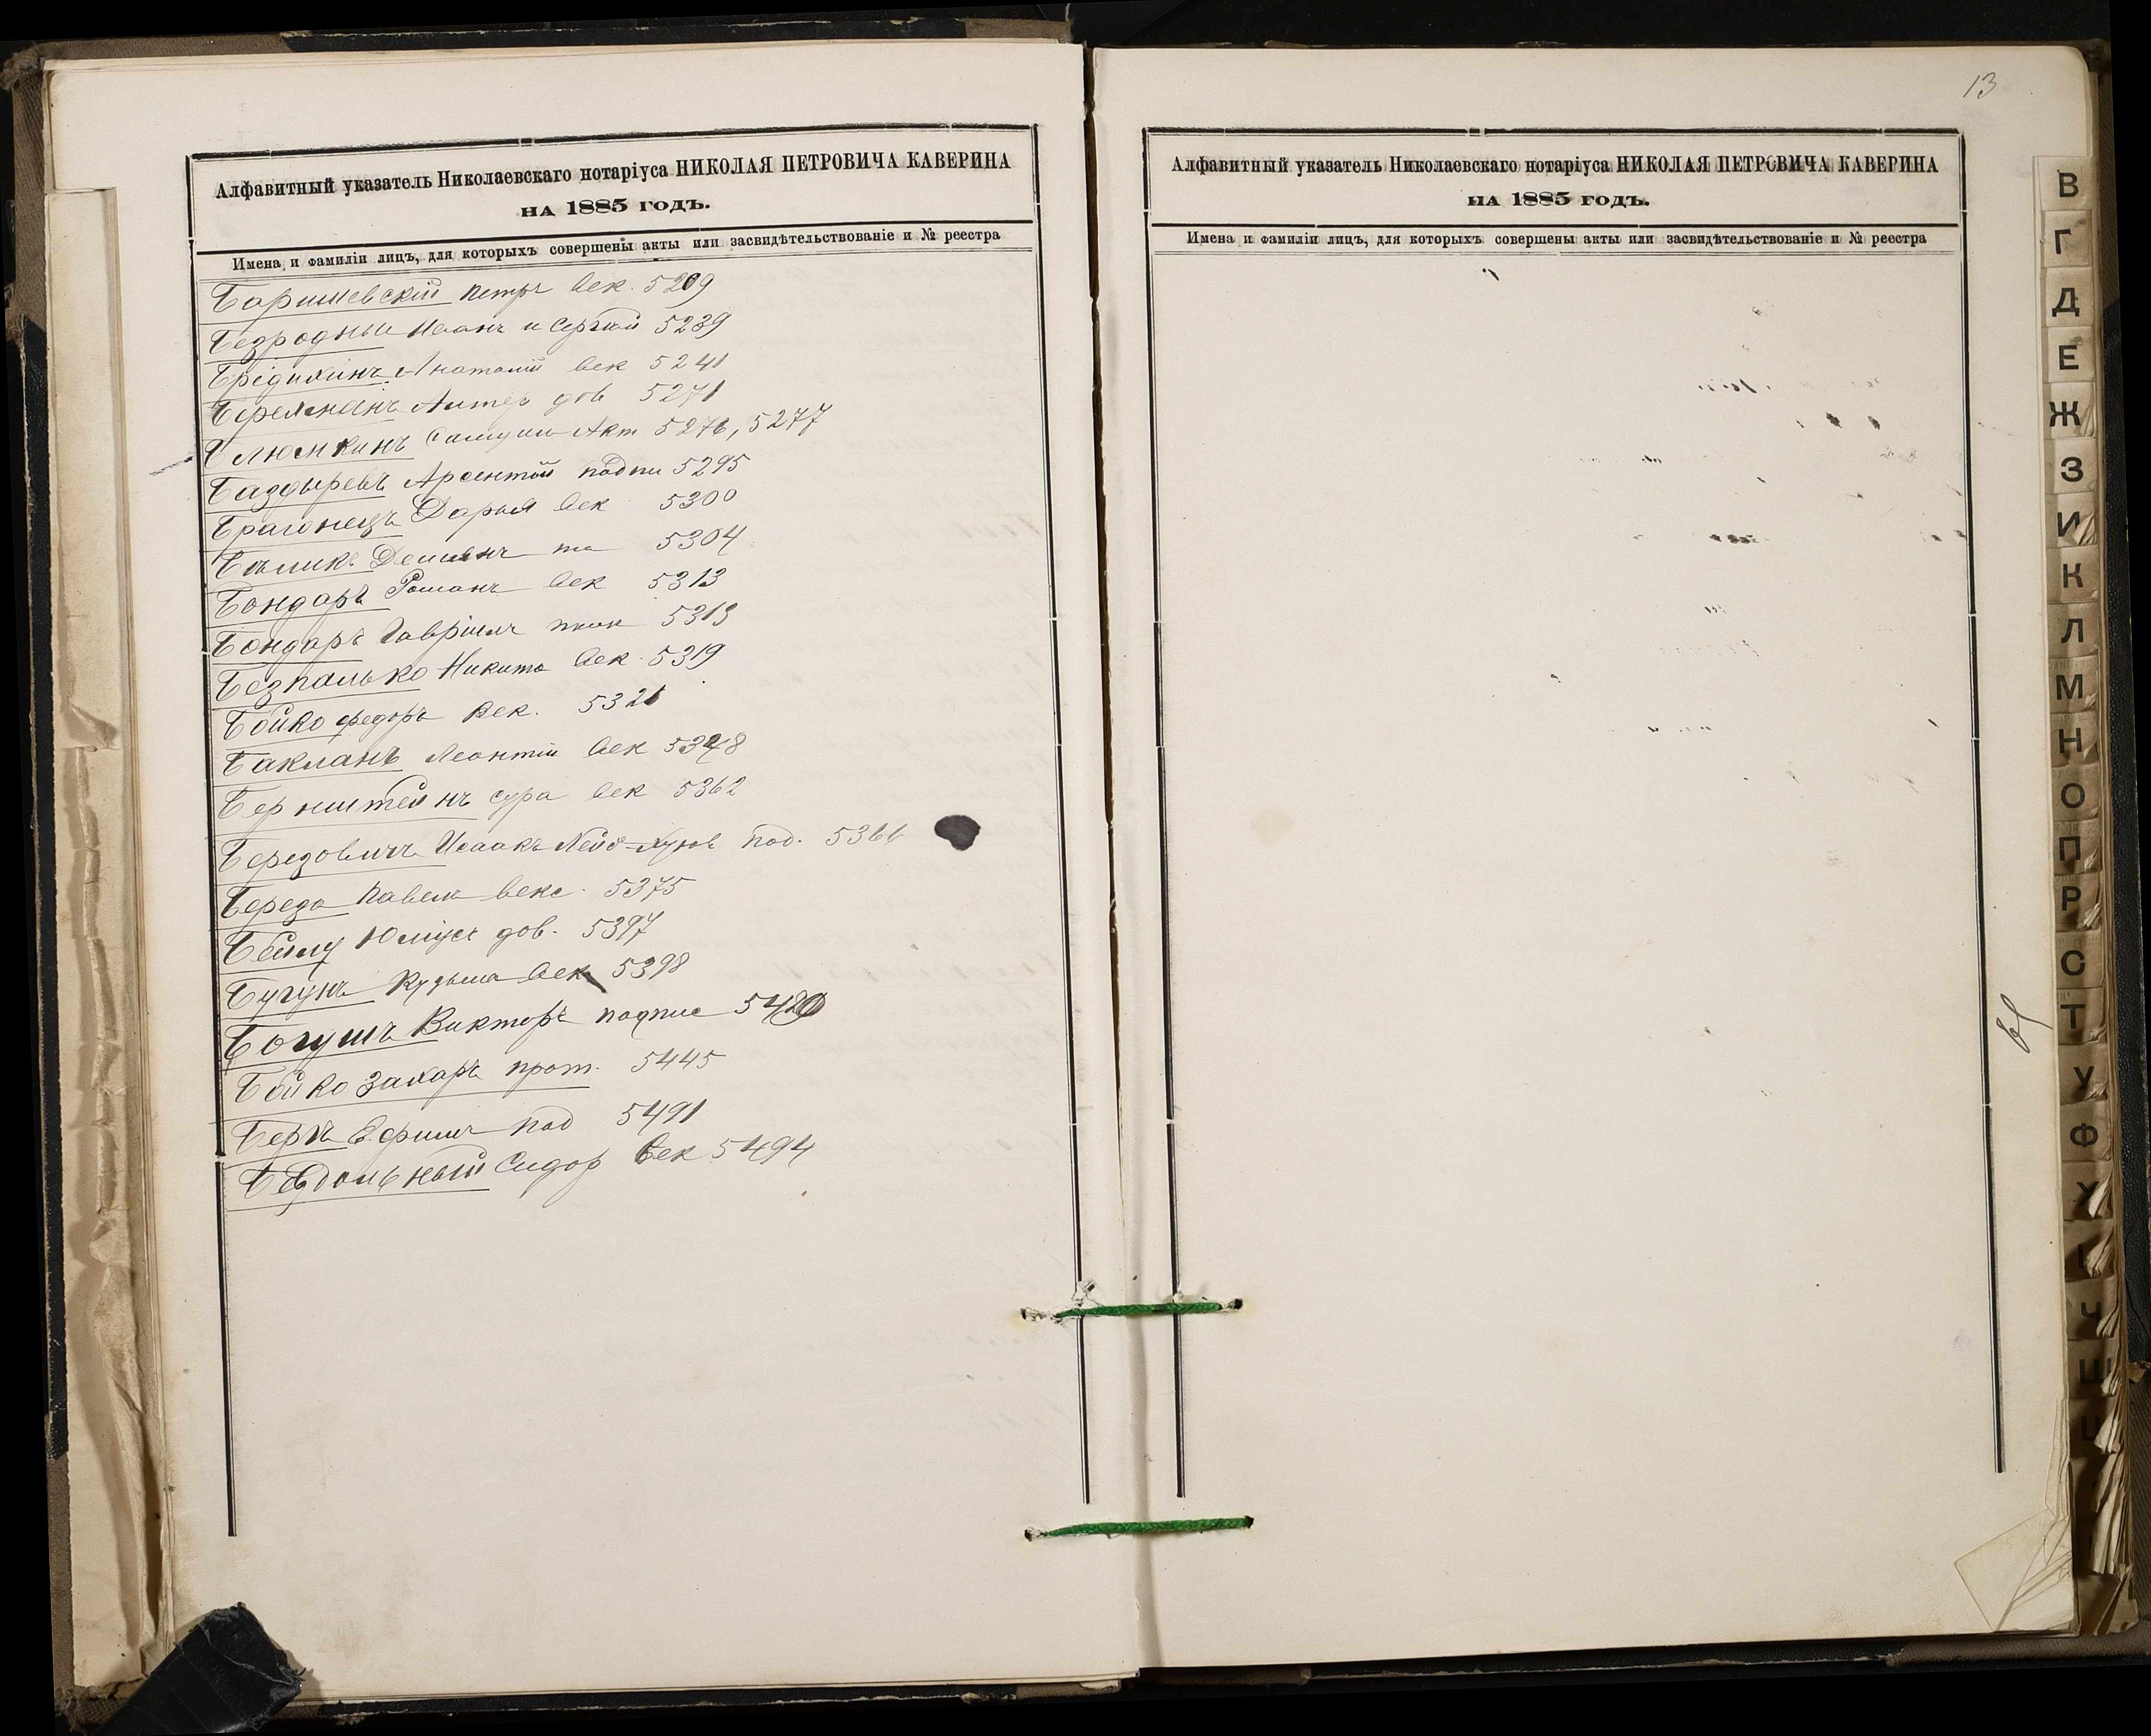 Алфавитный указатель Николаевскаго нотаріуса НИКОЛАЯ ПЕТРОВИЧА КАВЕРИНА
НА 1885 ГОДЪ.
Имена и фамиліи лицъ, для которыхъ совершены акты или засвидѣтельствованіе и № реестра
Баришевскій Петръ Век. 5209
Безродныи Иванъ и Сергѣй 5239
Анатолій Век 5241
дов 5271
Акт 5276, 5277
Баздыревъ Арсентій подпи 5295
Дарья Век 5300
Демьянъ 5304
Бондарь Романъ Век 5313
Бондарь Гавріилъ 5313
Безпалько Никита Век 5319
Бойко Федоръ Век. 5321
Бакланъ Леонтій Век 5348
Бернштейнъ Сура Век 5362
Березовичъ Исаакъ под. 5366
Береза Павелъ Векс. 5375
Юліусъ дов. 5397
Бугунъ Кузьма Век 5398
Богушъ Викторъ подпис 5420
Бойко Захаръ прот. 5445
Бергъ Ефимъ под 5491
Сидор Век 5494
13
Алфавитный указатель Николаевскаго нотаріуса НИКОЛАЯ ПЕТРОВИЧА КАВЕРИНА
НА 1885 ГОДЪ.
Имена и фамиліи лицъ, для которыхъ совершены акты или засвидѣтельствованіе и № реестра
В
Г
Д
Е
Ж
З
И
К
Л
М
Н
О
П
Р
С
Т
У
Ф
Х
Ч
Ш